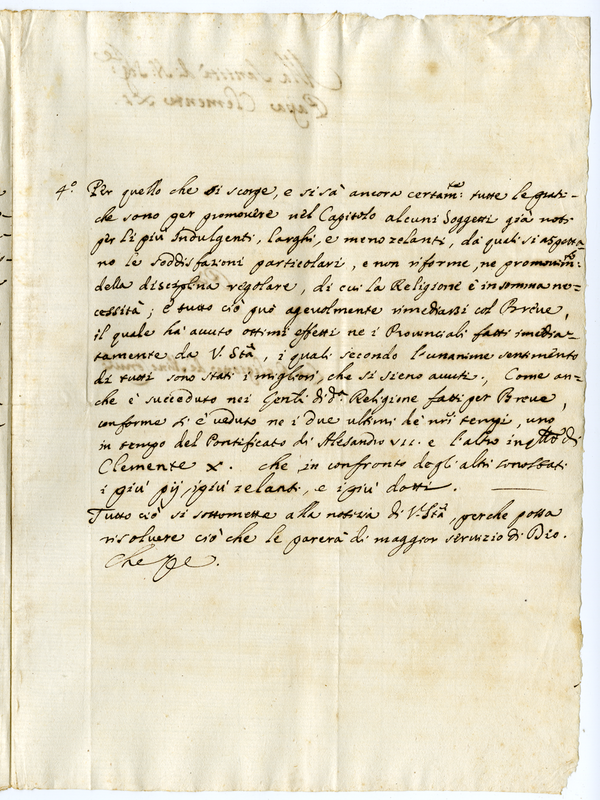 4.º Per quello che si scorge, e si sà ancora certam:te tutte le prati-
che sono per promovere nel Capitolo alcuni Soggetti già noti
per li più Indulgenti, larghi, e meno zelanti, da quali si aspetta-
no le soddisfazioni particolari, e non riforme, ne promovim:to
della disciplina regolare, di cui la Religione è in somma ne-
cessità; e tutto ciò può agevolmente rimediarsi col Breve,
il quale hà avuto ottimi effetti ne i Provinciali fatti imedia-
tamente da V. Stà, i quali secondo l'unanime sentimento
di tutti sono stati i migliori, che si sieno avuti., Come an-
che è succeduto nei Genli di d.a Religione fatti per Breve,
conforme si è veduto ne i due ultimi de nri tempi, uno
in tempo del Pontificato di Alesandro VII. e l'altro in qllo di
Clemente X. che in confronto degli altri sono stati
i più pij, i più zelanti, e i più dotti.
Tutto ciò si sottomette alla notizia di V. Stà, perche possa
risolvere ciò che le parerà di maggior servizio di Dio.
Che
Alla Santità di N. Sig.re
Papa Clemente XI.